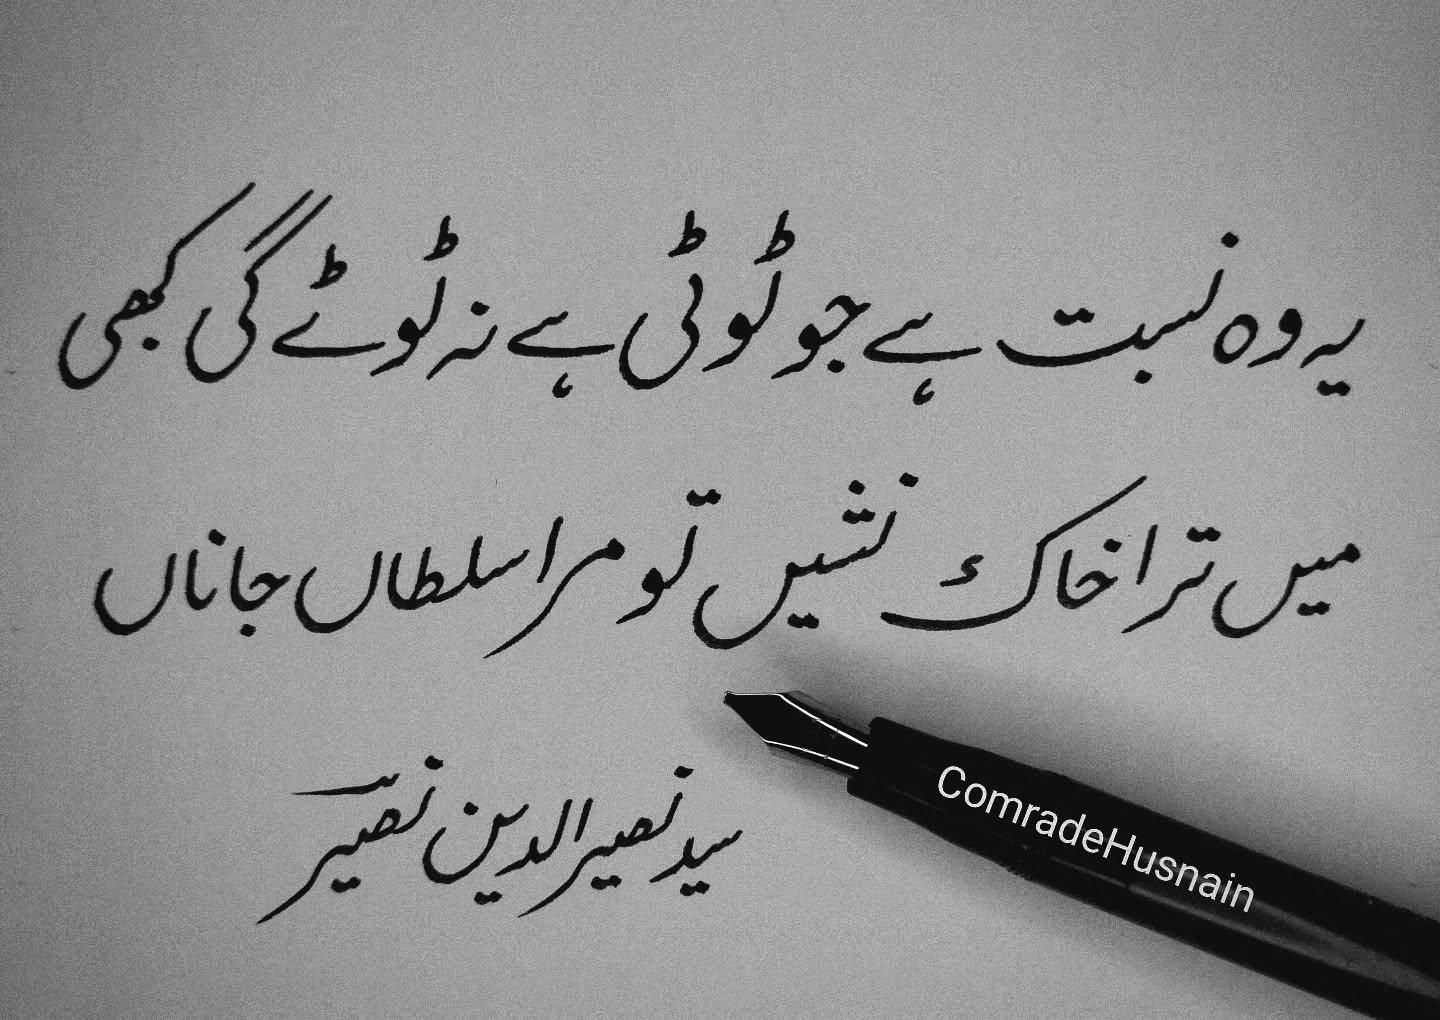 یہ وہ نسبت ہے جو ٹوٹی ہے نہ ٹوٹے گی کبھی
میں ترا خاکِ نشیں تو مرا سلطاں جاناں
سید نصیر الدین نصیرؔ
ComradeHusnain